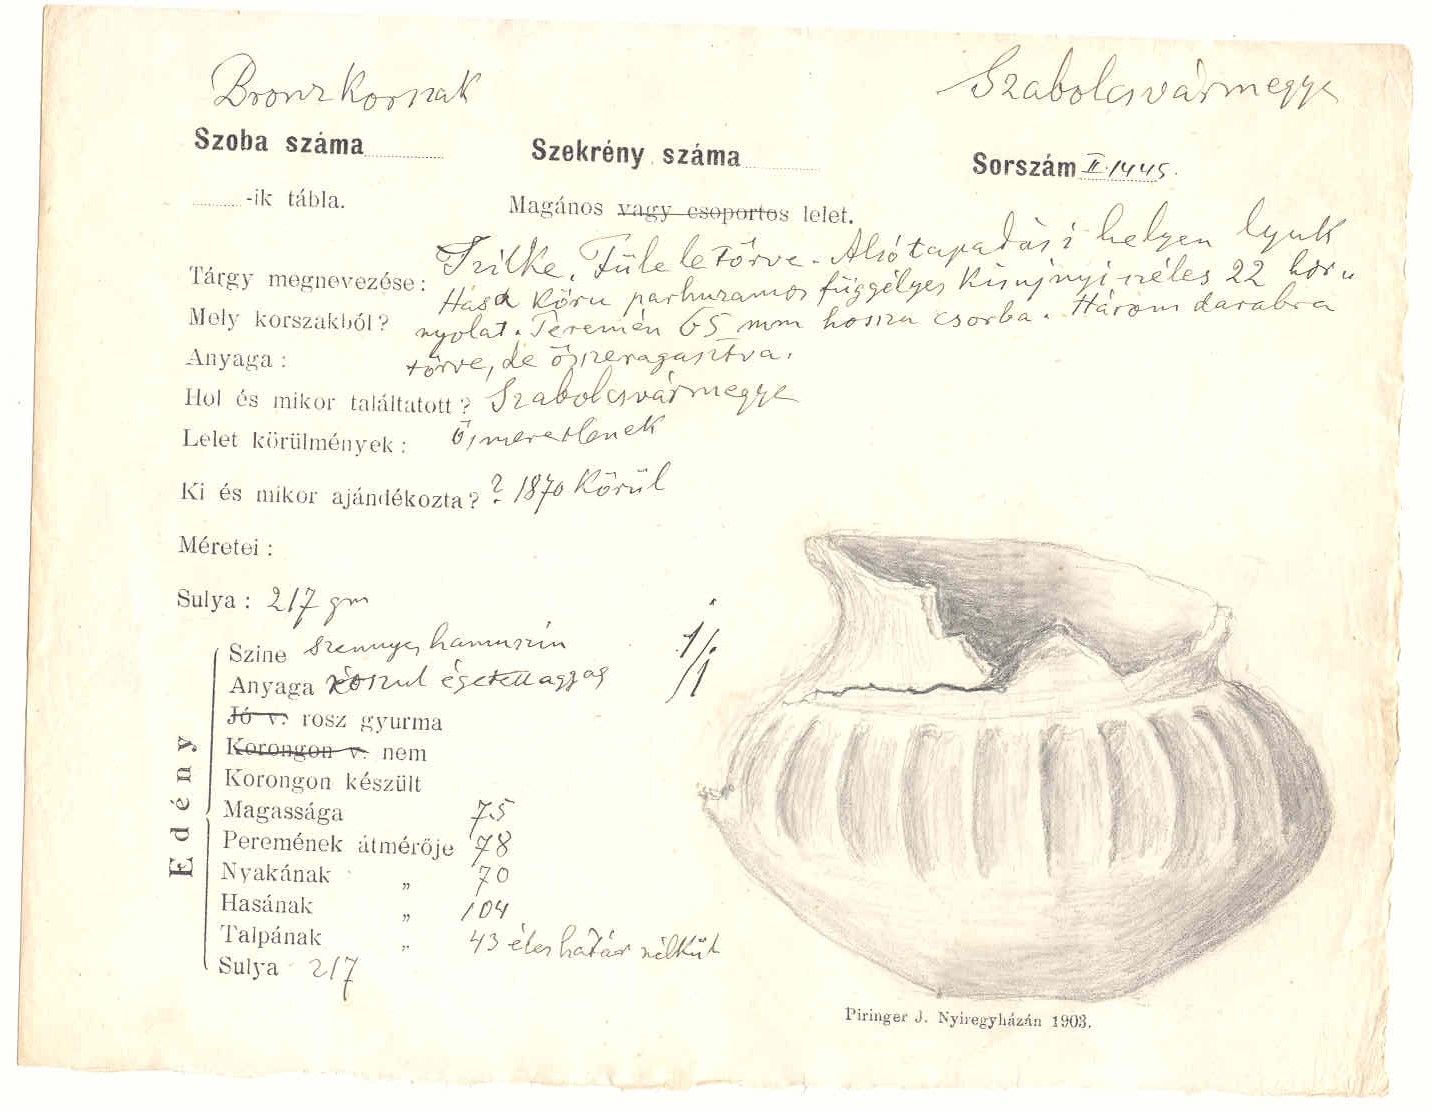 Bronzkorszak
Szabolcsvármegye
Szoba száma
Szekrény száma
Sorszám II.1445.
-ik tábla.
Magános vagy csoportos lelet.
Tárgy megnevezése: Szilke. Füle letörve. Alsó tapadási helyen lyuk
Hasa körü parhuzamos függélyes kisujnyi széles 22 hor„
Mely korszakból? nyolat. Peremén 65 mm hosszu csorba. Három darabra
Anyaga: törve, de összeragasztva.
Hol és mikor találtatott? Szabolcsvármegye
Lelet körülmények: ösmeretlenek
Ki és mikor ajándékozta? ? 1870 körül
Méretei:
Sulya: 217 gm
Edény
Szine szennyes hamuszin
Anyaga roszul égetett agyag
Jó v. rosz gyurma
Korongon v. nem
Korongon készült
Magassága 75
Peremének átmérője 78
Nyakának „ 70
Hasának „ 104
Talpának „ 43 éles határ nélkül
Sulya 217
1/1
Piringer J. Nyiregyházán 1903.